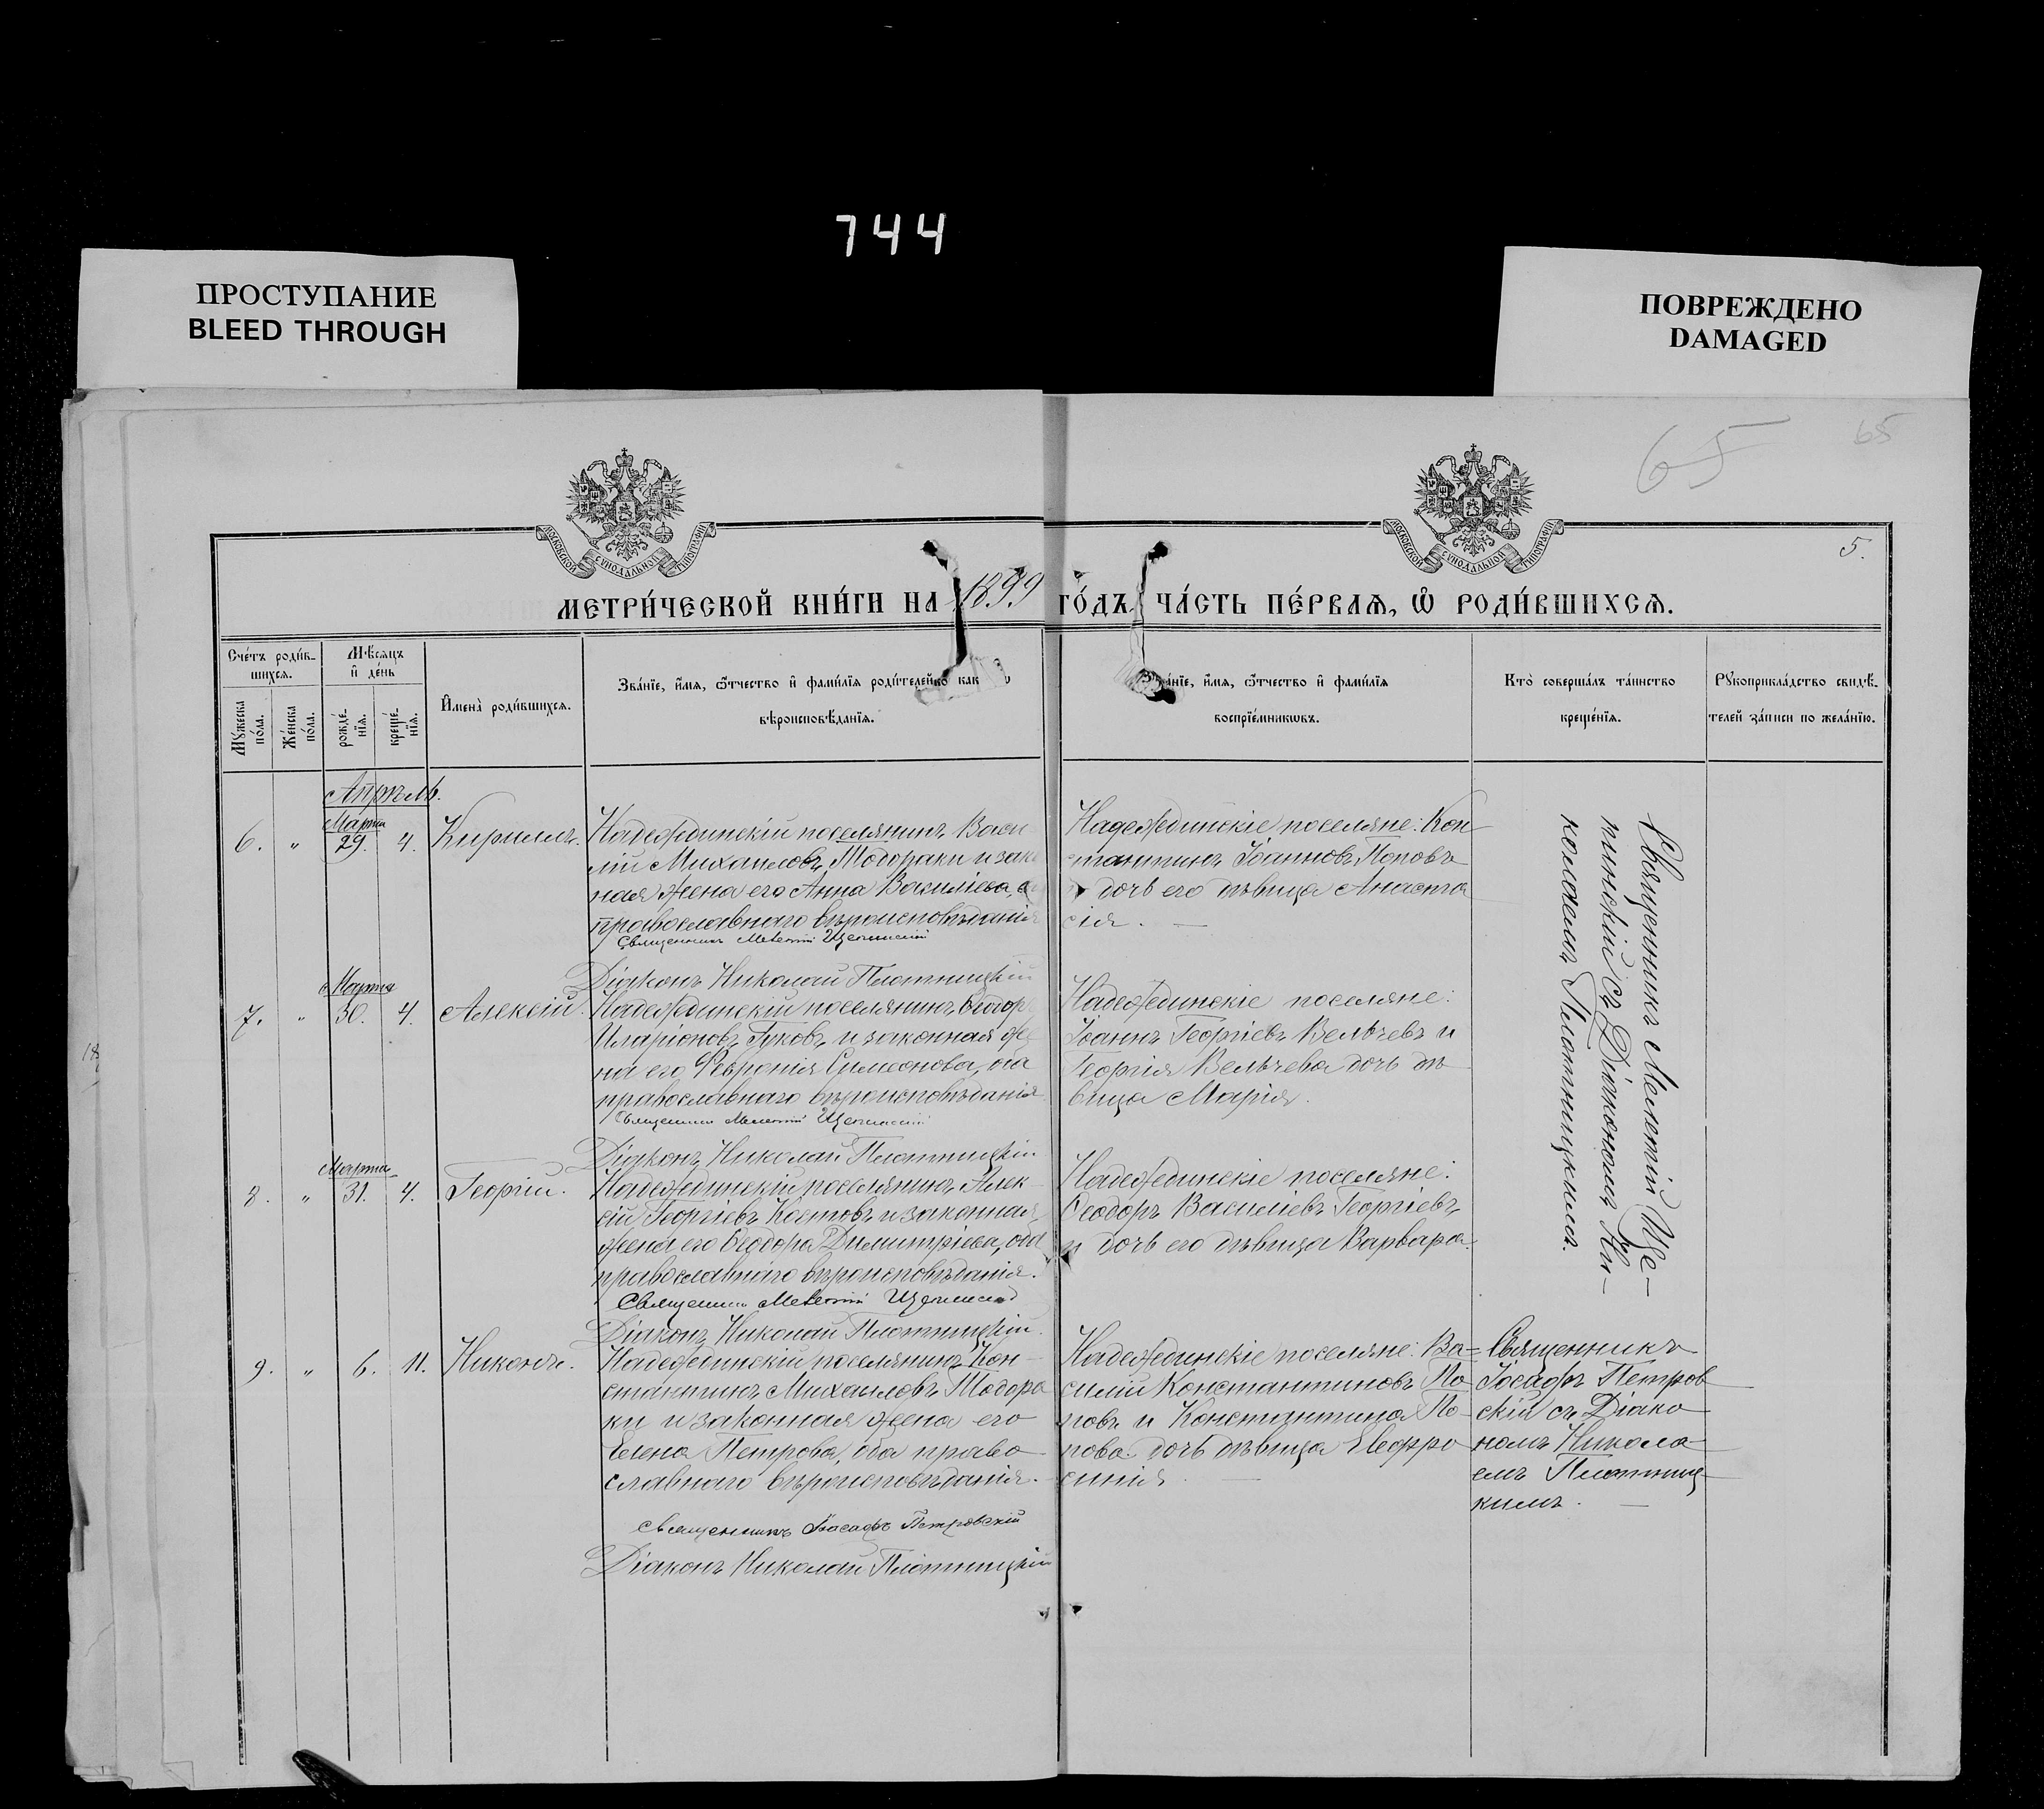 744
ПРОСТУПАНИЕ
BLEED THROUGH
ПОВРЕЖДЕНО
DAMAGED
65
65
5.
МОСКОВСКОЙ СУНОДАЛЬНОЙ ТИПОГРАФІИ
МОСКОВСКОЙ СУНОДАЛЬНОЙ ТИПОГРАФІИ
МЕТРИ́ЧЕСКОЙ КНИ́ГИ НА 1899 ГО́ДЪ, ЧА́СТЬ ПЕ́РВАѦ, Ѡ҆ РОДИ́ВШИХСѦ.
Сче́тъ роди́в-
шихсѧ.
Мꙋ́жеска
по́ла.
Же́нска
по́ла.
Мѣ́сѧцъ
и҆ де́нь
рожде́-
нїѧ.
креще́-
нїѧ.
И҆мена̀ роди́вшихсѧ.
Зва́нїе, и҆́мѧ, ѻ҆́тчество и҆ фами́лїѧ роди́телей, како
вѣроисповѣ́данїѧ.
Зва́нїе, и҆́мѧ, ѻ҆́тчество и҆ фами́лїѧ
воспрїе́мникѡвъ.
Кто̀ соверша́лъ та́инство
креще́нїѧ.
Рꙋкоприкла́дство свидѣ́-
телей за́писи по жела́нїю.
Апрѣль.
Марта
6. " 29. 4. Кириллъ.
Надеждинскій поселянинъ Васи
лій Михаиловъ Тодораки и зак
ная жена его Анна Василіева, о
православнаго вѣроисповѣданія
Священникъ Мелетій Щепинскій
Діаконъ Николай Плотницкій
Надеждинскіе поселяне: Кон
стантинъ Іоанновъ Поповъ
и дочь его дѣвица Анаста
сія. —
Марта
7. " 30. 4. Алексій.
Надеждинскій поселянинъ Ѳеодор
Иларіоновъ Гуковъ и законная же
на его Февронія Симеонова, оба
православнаго вѣроисповѣданія.
Священникъ Мелетій Щепинскій
Діаконъ Николай Плотницкій
Надеждинскіе поселяне:
Іоаннъ Георгіевъ Вельчевъ и
Георгія Вельчева дочь дѣ
вица Марія.
Марта
8. " 31. 4. Георгій.
Надеждинскій поселянинъ Алек
сій Георгіевъ Костовъ и законная
жена его Ѳеодора Димитріева, оба
православнаго вѣроисповѣданія.
Священникъ Мелетій Щепинскій
Діаконъ Николай Плотницкій.
Надеждинскіе поселяне:
Ѳеодоръ Василіевъ Георгіевъ
и дочь его дѣвица Варвара.
Священникъ Мелетій Ще-
пинскій съ Діакономъ Ни-
колаемъ Плотницкимъ.
9. " 6. 11. Никонъ.
Надеждинскій поселянинъ Кон-
стантинъ Михаиловъ Тодора
ки и законная жена его
Елена Петрова, оба право
славнаго вѣроисповѣданія.
Священникъ Іоасафъ Петровскій
Діаконъ Николай Плотницкій
Надеждинскіе поселяне: Ва-
силій Константиновъ По
повъ и Константина По
пова дочь дѣвица Евфро
синія. —
Священникъ
Іоасафъ Петров
скій съ Діако
номъ Никола
емъ Плотниц
кимъ. —